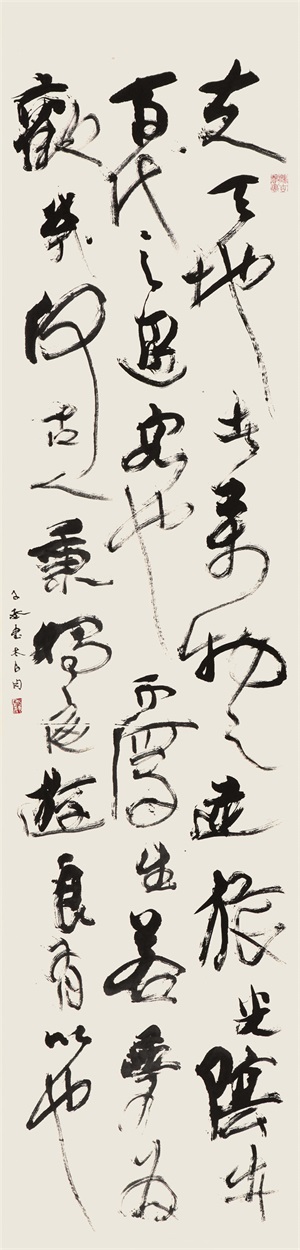 夫天地者萬物之逆旅光陰者
百代之過客也而浮生若夢為
歡幾何古人秉燭夜遊良有以也